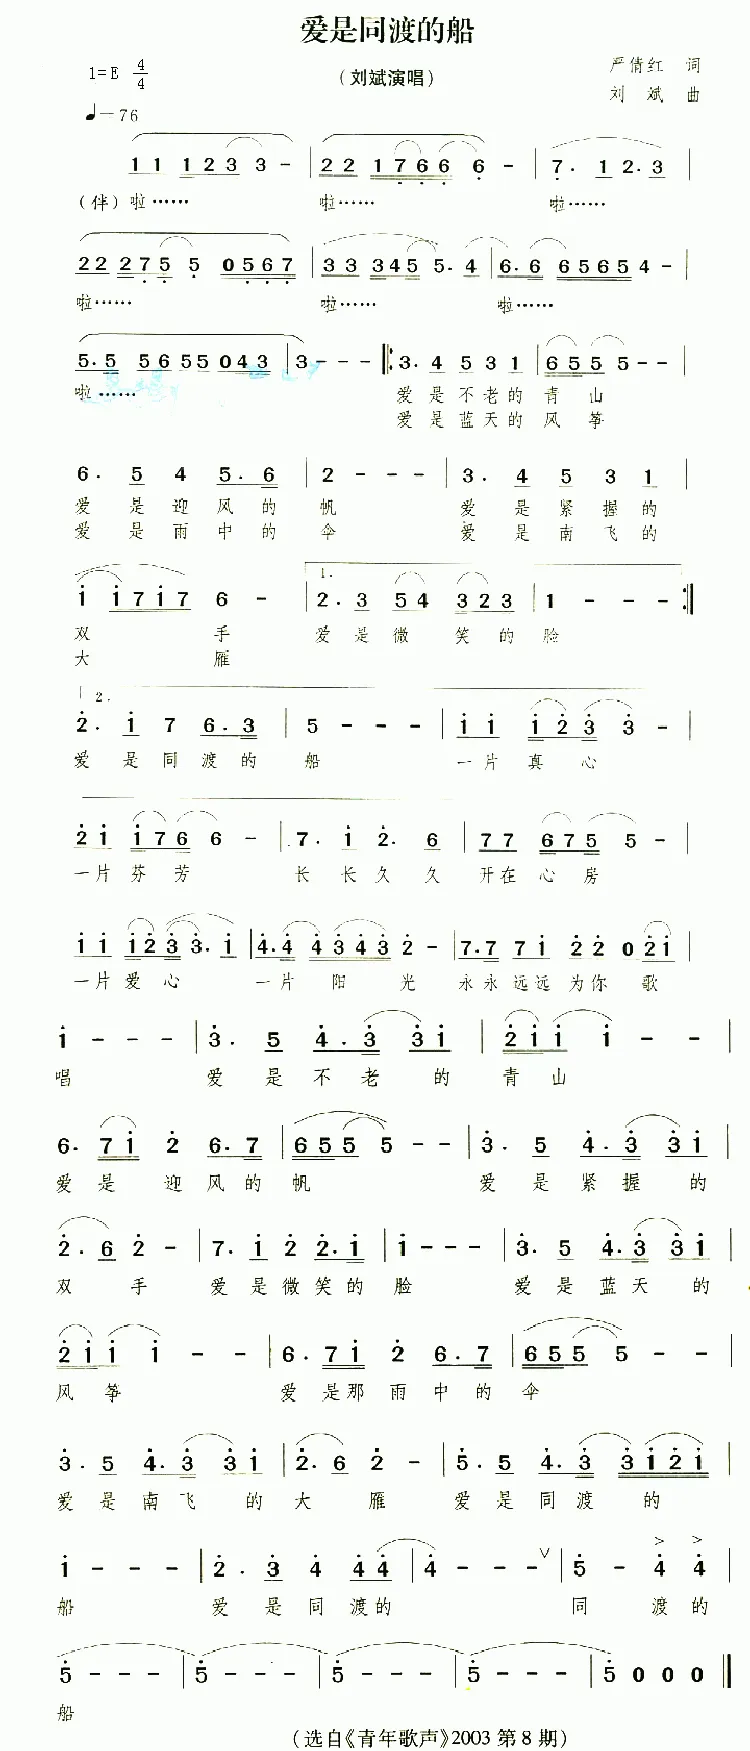 爱是同渡的船
1=E 4/4
（刘斌演唱）
严倩红 词
刘 斌 曲
♩=76
1 1 1 2 3 3 - | 2 2 1 7 6 6 6 - | 7. 1 2. 3 |
（伴）啦…… 啦…… 啦……
2 2 2 7 5 5 0 5 6 7 | 3 3 3 4 5 5. 4 | 6. 6 6 5 6 5 4 - |
啦…… 啦…… 啦……
5. 5 5 6 5 5 0 4 3 | 3 - - - ‖: 3. 4 5 3 1 | 6 5 5 5 - - |
啦…… 爱是不老的青山
爱是蓝天的风筝
6. 5 4 5. 6 | 2 - - - | 3. 4 5 3 1 |
爱是迎风的帆 爱是紧握的
爱是雨中的伞 爱是南飞的
i i 7 i 7 6 - | 1. 2. 3 5 4 3 2 3 | 1 - - - :‖
双手 爱是微笑的脸
大雁
2. 2. i 7 6. 3 | 5 - - - | i i i 2 3 3 - |
爱是同渡的船 一片真心
2 i i 7 6 6 - | 7. i 2. 6 | 7 7 6 7 5 5 - |
一片芬芳 长长久久 开在心房
i i i 2 3 3. i | 4. 4 4 3 4 3 2 - | 7. 7 7 i 2 2 0 2 i |
一片爱心 一片阳光 永永远远为你歌
i - - - | 3. 5 4. 3 3 i | 2 i i i - - |
唱 爱是不老的青山
6. 7 i 2 6. 7 | 6 5 5 5 - - | 3. 5 4. 3 3 i |
爱是迎风的帆 爱是紧握的
2. 6 2 - | 7. i 2 2. i | i - - - | 3. 5 4. 3 3 i |
双手 爱是微笑的脸 爱是蓝天的
2 i i i - - | 6. 7 i 2 6. 7 | 6 5 5 5 - - |
风筝 爱是那雨中的伞
3. 5 4. 3 3 i | 2. 6 2 - | 5. 5 4. 3 3 i 2 i |
爱是南飞的大雁 爱是同渡的
i - - - | 2. 3 4 4 4 | 4 - - - ∨ | 5 - 4 4 |
船 爱是同渡的 同渡的
5 - - - | 5 - - - | 5 - - - | 5 - - - | 5 0 0 0 ‖
船
（选自《青年歌声》2003 第 8 期）